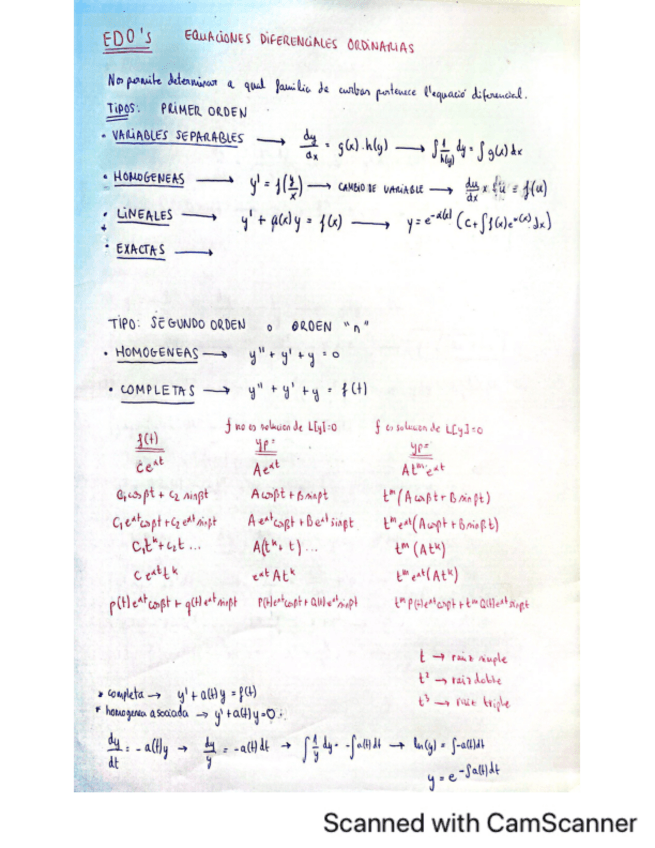 EDO's EQUACIONES DIFERENCIALES ORDINARIAS
Nos permite determinar a qual familia de curbas pertenece l'equació diferencial.
TIPOS: PRIMER ORDEN
• VARIABLES SEPARABLES → dy/dx = g(x)·h(y) → ∫ 1/h(y) dy = ∫ g(x) dx
• HOMOGENEAS → y' = f(y/x) → CAMBIO DE VARIABLE → du/dx x + u = f(u)
• LINEALES → y' + a(x)y = f(x) → y = e^-α(x) (c + ∫ f(x)e^α(x) dx)
• EXACTAS →
TIPO: SEGUNDO ORDEN o ORDEN "n"
• HOMOGENEAS → y'' + y' + y = 0
• COMPLETAS → y'' + y' + y = f(t)
f no es solucion de L[y]=0 f es solucion de L[y]=0
f(t) yp= yp=
Ce^αt Ae^αt At^m e^αt
C₁cosβt + C₂ sinβt Acosβt + Bsinβt t^m(Acosβt + Bsinβt)
C₁e^αt cosβt + C₂e^αt sinβt Ae^αt cosβt + Be^αt sinβt t^m e^αt(Acosβt + Bsinβt)
C₁t^k + C₂t ... A(t^k + t) ... t^m (At^k)
C e^αt t^k e^αt At^k t^m e^αt (At^k)
p(t)e^αt cosβt + q(t)e^αt sinβt P(t)e^αt cosβt + Q(t)e^αt sinβt t^m P(t)e^αt cosβt + t^m Q(t)e^αt sinβt
t → raiz simple
t² → raiz doble
t³ → raiz triple
• completa → y' + a(t)y = f(t)
• homogenea asociada → y' + a(t)y = 0 :
dy/dt = -a(t)y → dy/y = -a(t)dt → ∫ 1/y dy = -∫a(t)dt → ln(y) = ∫-a(t)dt
y = e^-∫a(t)dt
Scanned with CamScanner